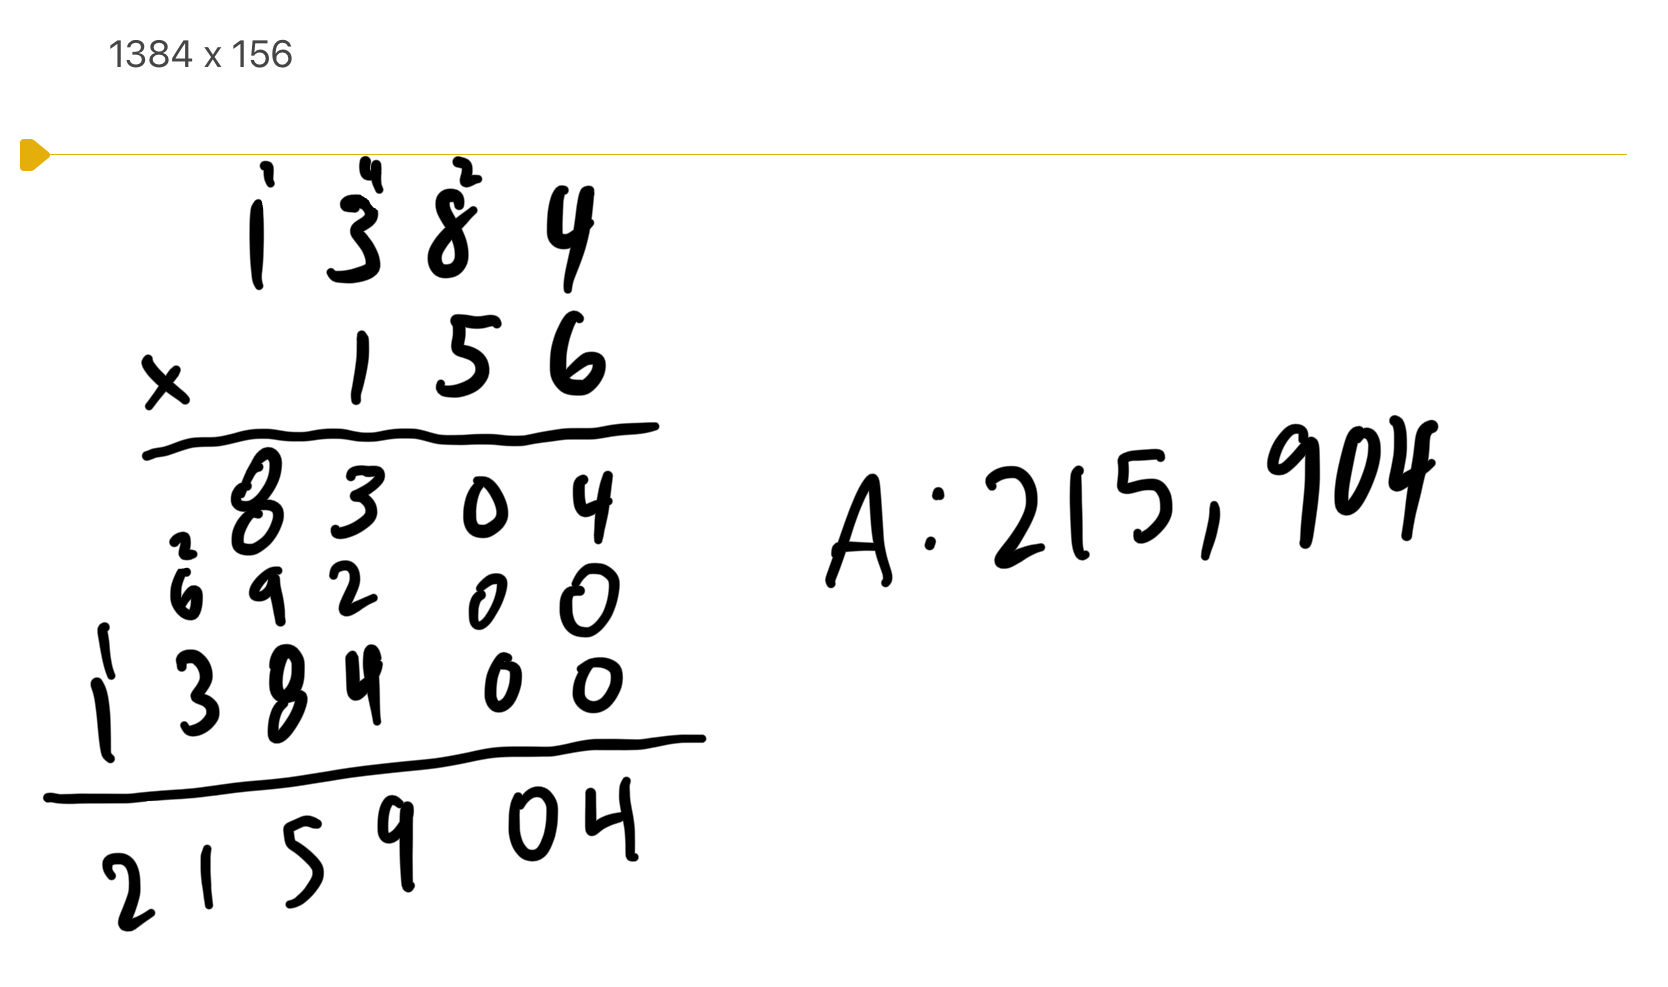 1384 x 156
1 4 2
1 3 8 4
x 1 5 6
8 3 0 4
2
6 9 2 0 0
1
1 3 8 4 0 0
2 1 5 9 0 4
A: 215,904